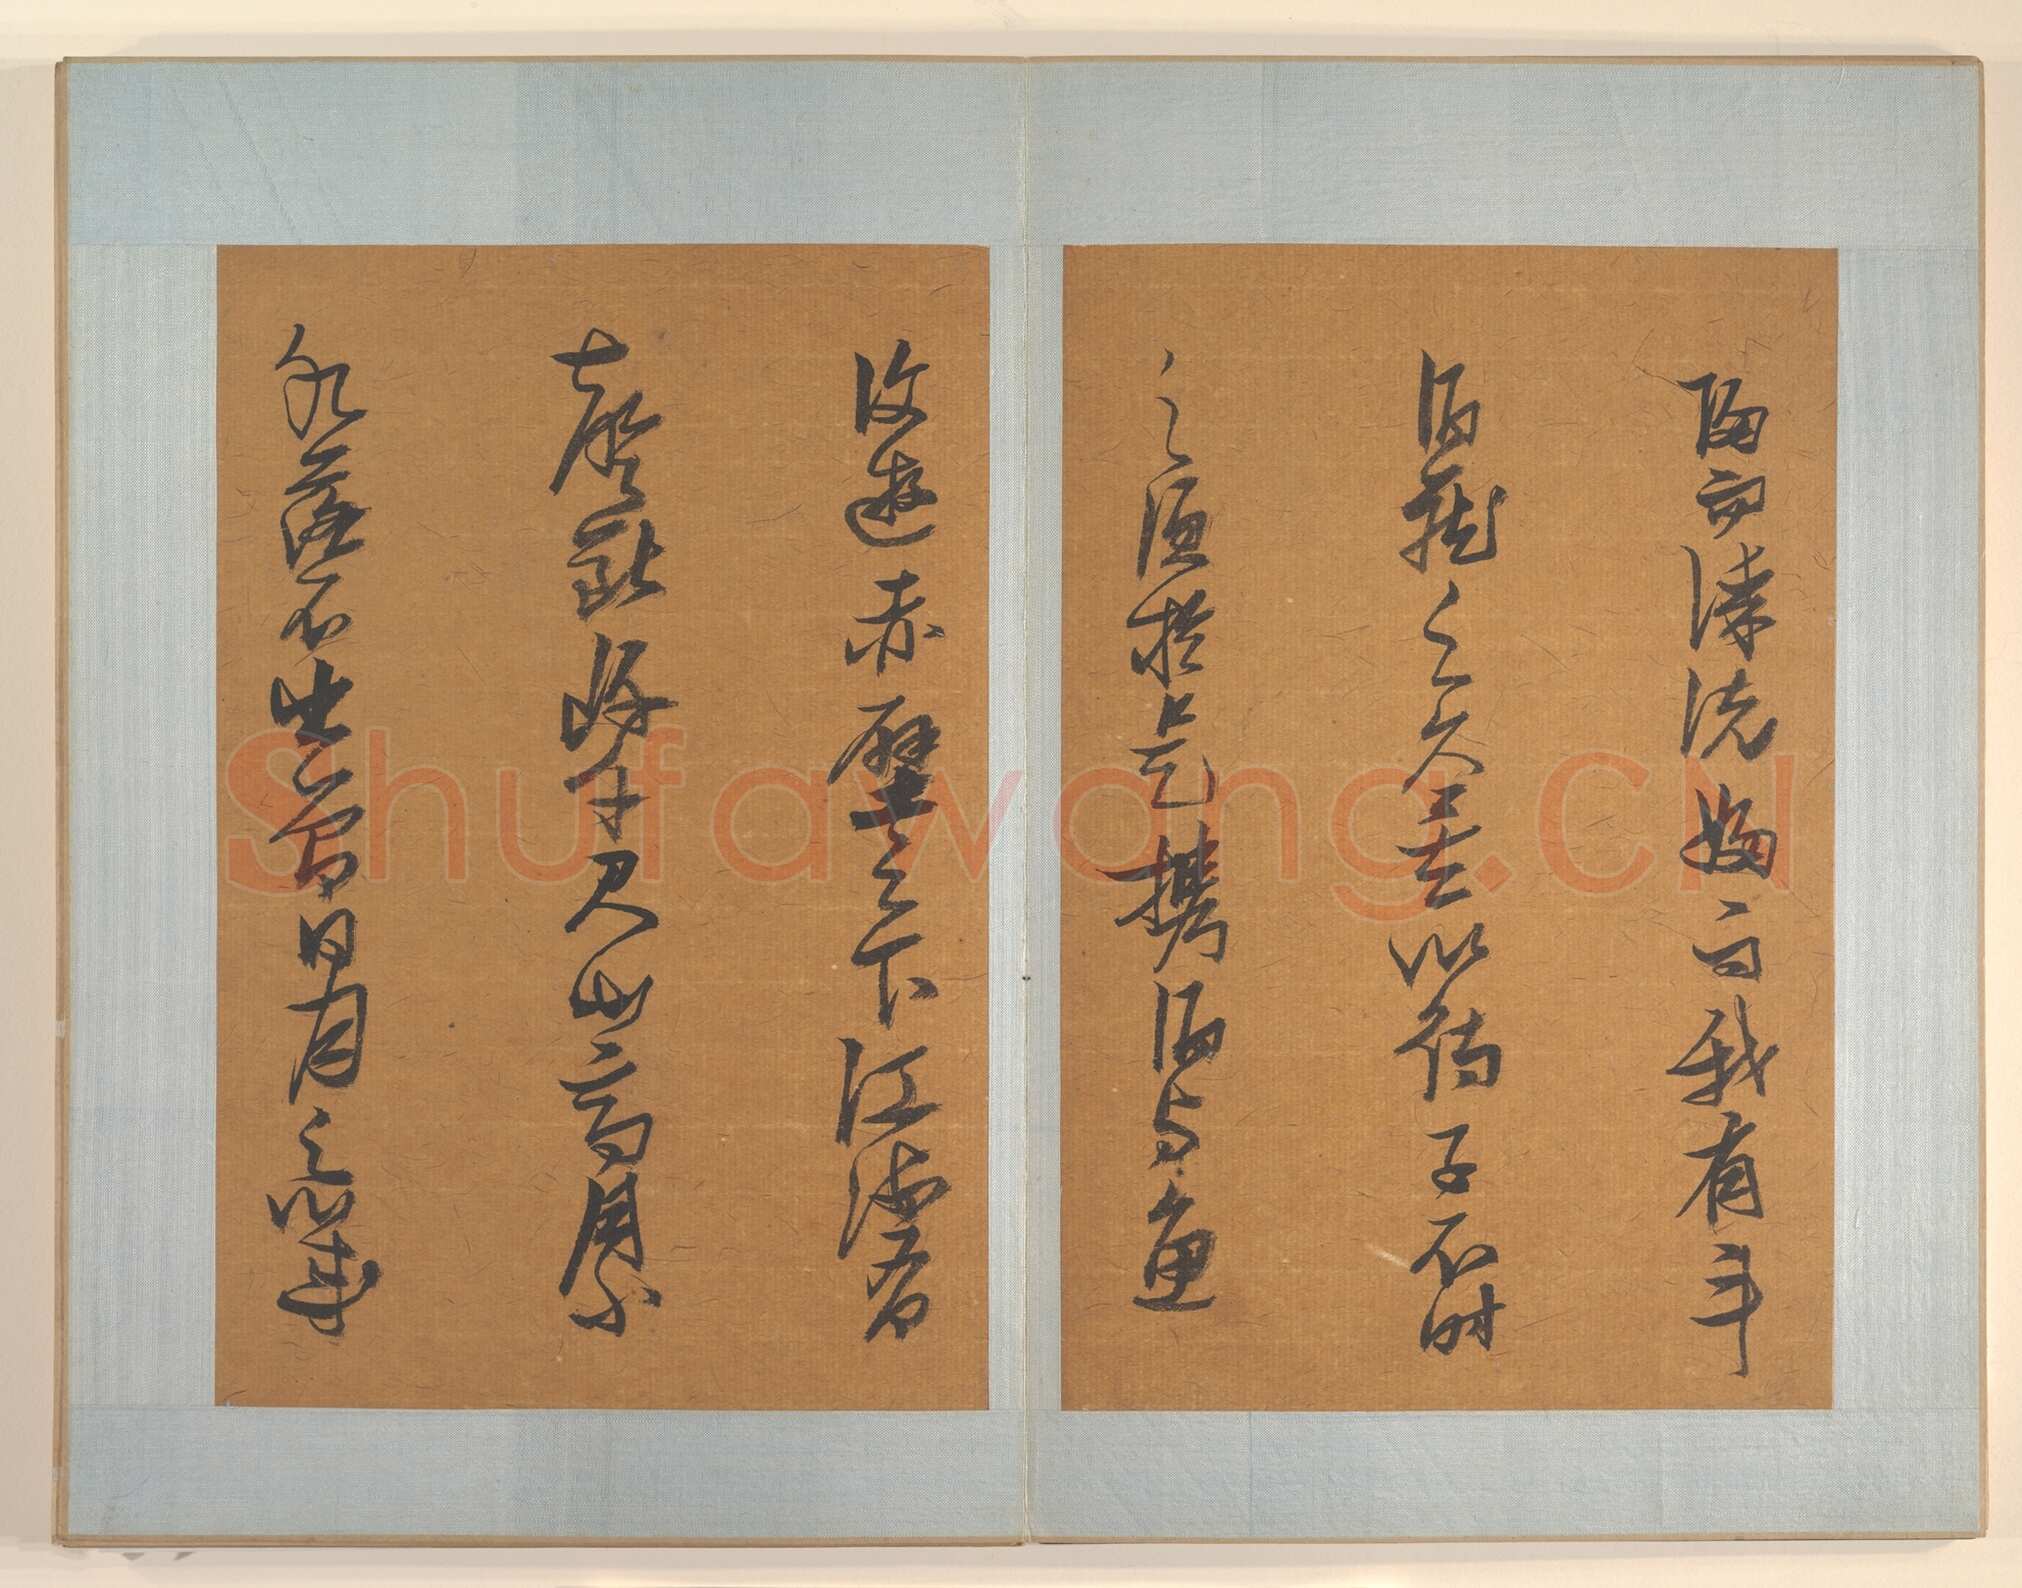 歸而謀諸婦曰我有斗
酒藏之久矣以待子不時
之須於是攜酒與魚
復遊赤壁之下江流有
聲斷岸千尺山高月小
水落石出曾日月之幾
Shufawang.CN